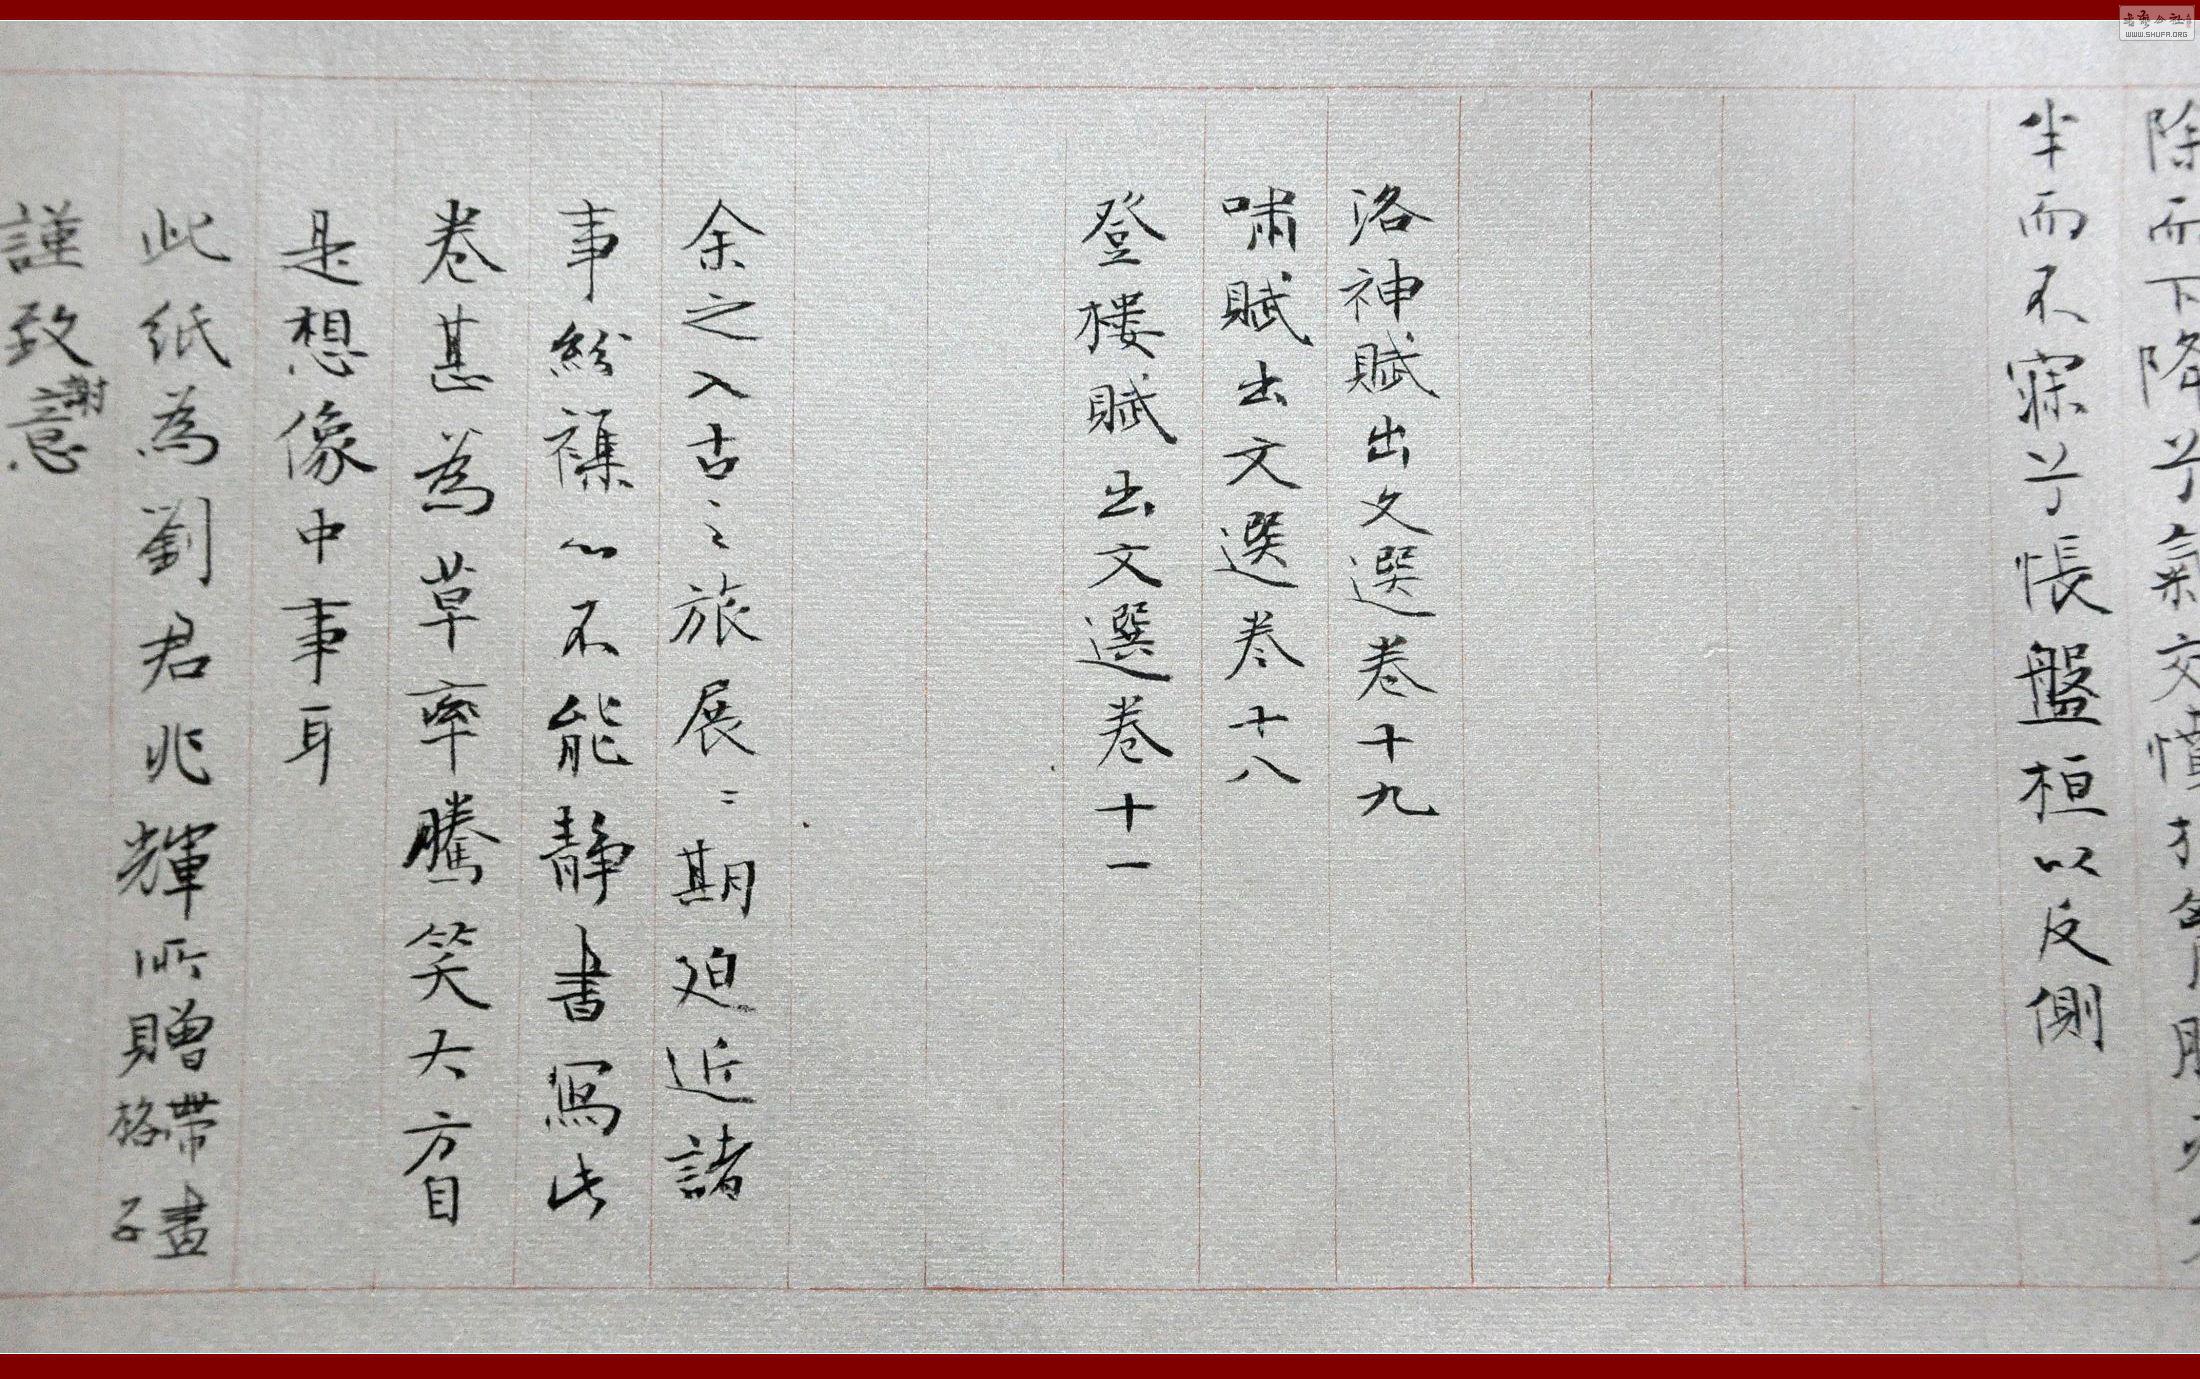 除而下降兮氣交憤於胷
半而不寐兮悵盤桓以反側
洛神賦出文選卷十九
啸賦出文選卷十八
登樓賦出文選卷十一
余之入古之之旅展=期迫近諸
事紛襍心不能静書寫此
卷甚為草率騰笑大方自
是想像中事耳
此紙為劉君兆輝所贈帶畫格子
謹致謝意
WWW.SHUFA.ORG